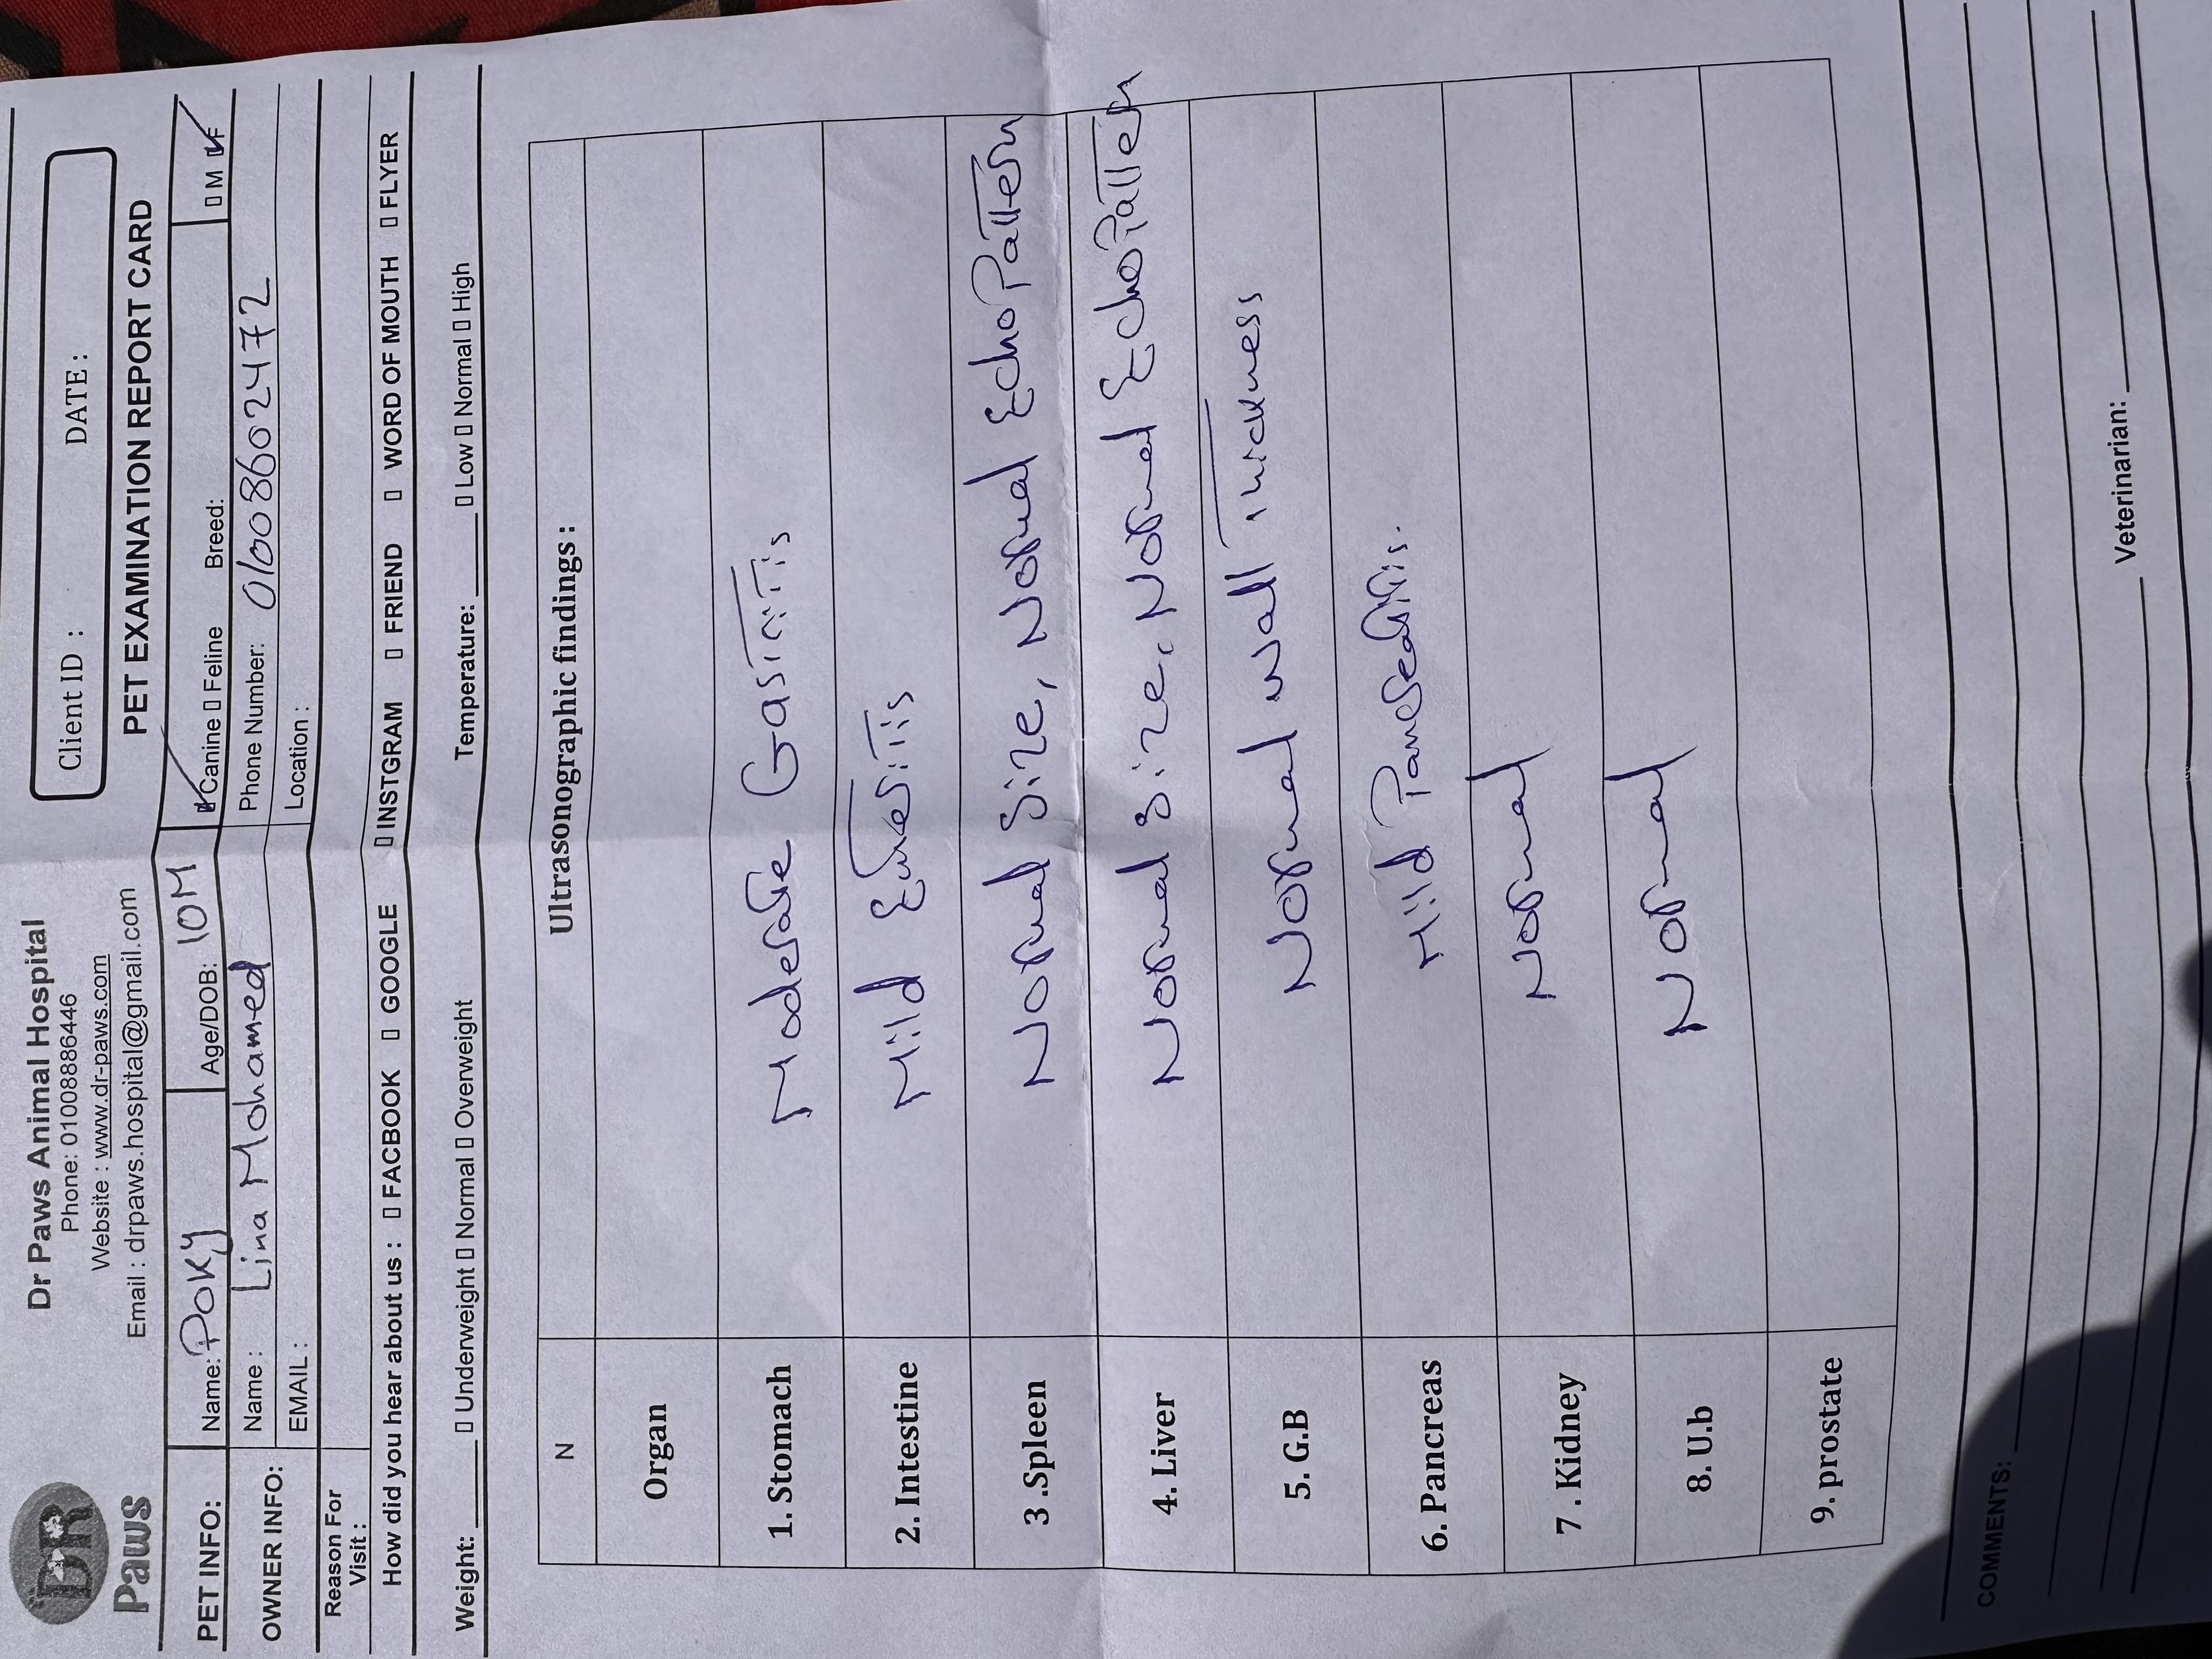 DR
Paws
Dr Paws Animal Hospital
Phone: 01008886446
Website : www.dr-paws.com
Email : drpaws.hospital@gmail.com
Client ID : DATE :
PET EXAMINATION REPORT CARD
PET INFO: Name: Poky Age/DOB: 10M Canine Feline Breed: M F
OWNER INFO: Name : Lina Mohamed Phone Number: 01008602472
EMAIL : Location :
Reason For
Visit :
How did you hear about us : FACBOOK GOOGLE INSTGRAM FRIEND WORD OF MOUTH FLYER
Weight: ____ Underweight Normal Overweight Temperature: ____ Low Normal High
N Ultrasonographic findings :
Organ
1. Stomach Moderate Gastritis
2. Intestine Mild Enteritis
3 .Spleen Normal Size, Normal EchoPattern
4. Liver Normal Size, Normal EchoPattern
5. G.B Normal wall Thickness
6. Pancreas Mild Pancreatitis.
7 . Kidney Normal
8. U.b Normal
9. prostate
COMMENTS:
Veterinarian: